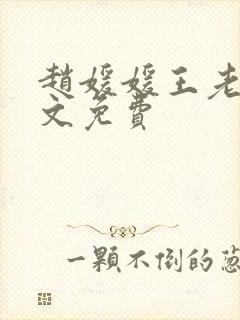 趙媛媛王老
文免費
一顆不倒的蔥